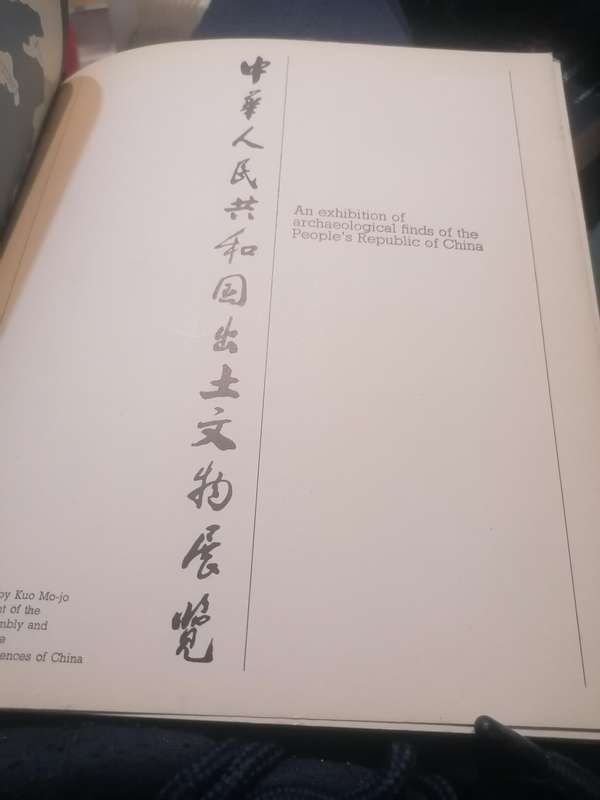 中华人民共和国出土文物展览
An exhibition of
archaeological finds of the
People's Republic of China
by Kuo Mo-jo
of the
and
of China